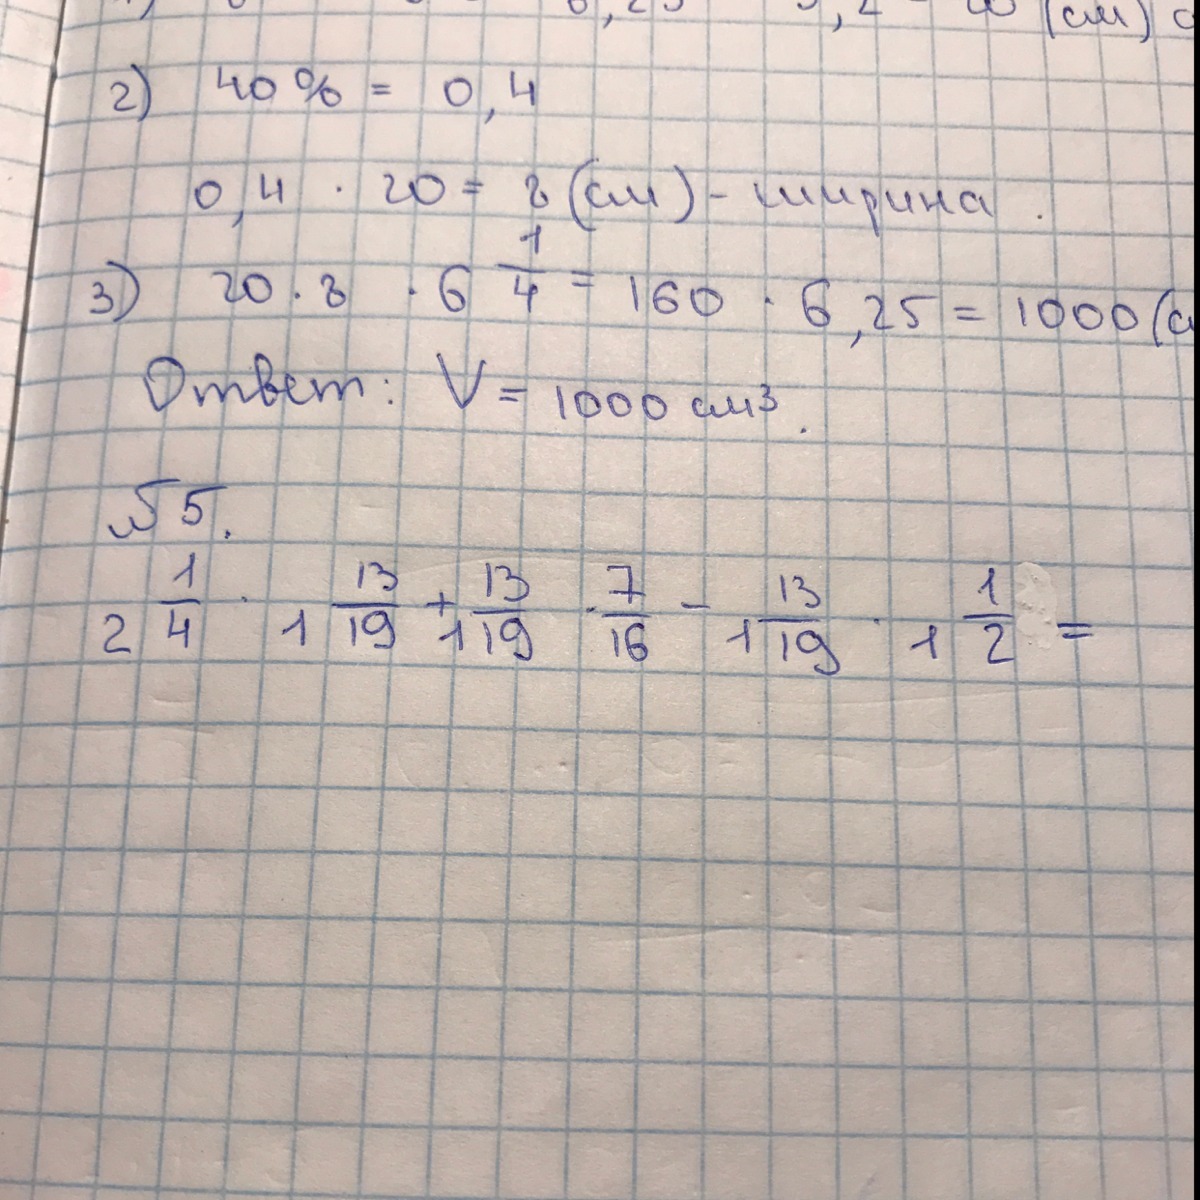 6,25 · 3,2 = 20 (см)
2) 40% = 0,4
0,4 · 20 = 8 (см) - ширина.
3) 20 · 8 · 6 1/4 = 160 · 6,25 = 1000 (с
Ответ: V = 1000 см³.
№5.
2 1/4 · 1 13/19 + 1 13/19 · 7/16 - 1 13/19 · 1 1/2 =